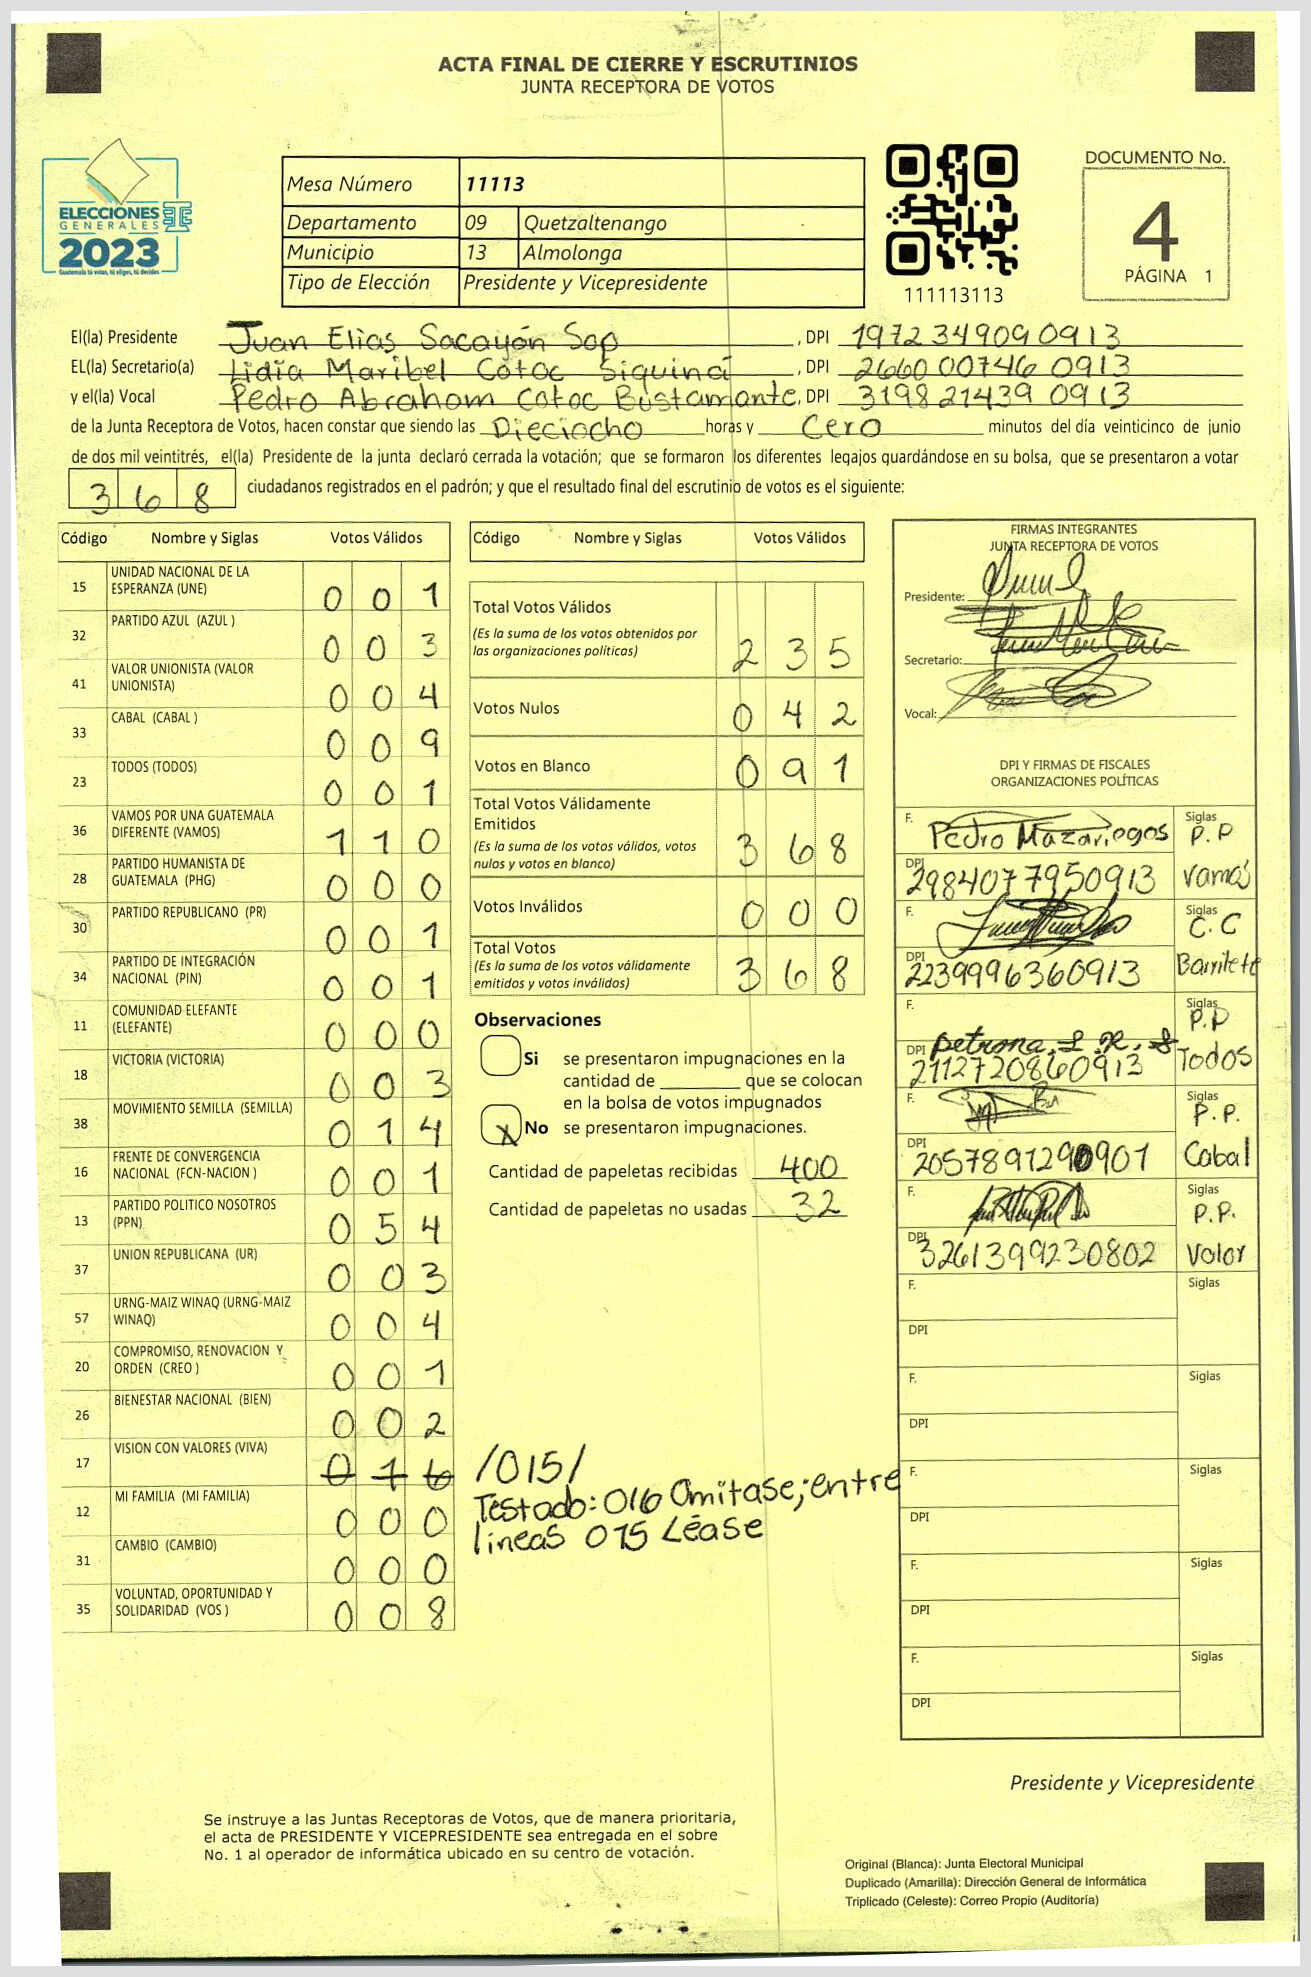 ACTA FINAL DE CIERRE Y ESCRUTINIOS
JUNTA RECEPTORA DE VOTOS
ELECCIONES
GENERALES
2023
Guatemala tú votas, tú eliges, tú decides
Mesa Número 11113
Departamento 09 Quetzaltenango
Municipio 13 Almolonga
Tipo de Elección Presidente y Vicepresidente
111113113
DOCUMENTO No.
4
PÁGINA 1
El(la) Presidente Juan Elias Sacayón Sop, DPI 1972349090913
EL(la) Secretario(a) Lidia Maribel Cotoc Siquiná, DPI 2660007460913
y el(la) Vocal Pedro Abraham Cotoc Bustamante, DPI 3198214390913
de la Junta Receptora de Votos, hacen constar que siendo las Dieciocho horas y Cero minutos del día veinticinco de junio
de dos mil veintitrés, el(la) Presidente de la junta declaró cerrada la votación; que se formaron los diferentes legajos guardándose en su bolsa, que se presentaron a votar
368 ciudadanos registrados en el padrón; y que el resultado final del escrutinio de votos es el siguiente:
Código Nombre y Siglas Votos Válidos
15 UNIDAD NACIONAL DE LA
ESPERANZA (UNE) 001
32 PARTIDO AZUL (AZUL ) 003
41 VALOR UNIONISTA (VALOR
UNIONISTA) 004
33 CABAL (CABAL ) 009
23 TODOS (TODOS) 001
36 VAMOS POR UNA GUATEMALA
DIFERENTE (VAMOS) 110
28 PARTIDO HUMANISTA DE
GUATEMALA (PHG) 000
30 PARTIDO REPUBLICANO (PR) 001
34 PARTIDO DE INTEGRACIÓN
NACIONAL (PIN) 001
11 COMUNIDAD ELEFANTE
(ELEFANTE) 000
18 VICTORIA (VICTORIA) 003
38 MOVIMIENTO SEMILLA (SEMILLA) 014
16 FRENTE DE CONVERGENCIA
NACIONAL (FCN-NACION ) 001
13 PARTIDO POLITICO NOSOTROS
(PPN) 054
37 UNION REPUBLICANA (UR) 003
57 URNG-MAIZ WINAQ (URNG-MAIZ
WINAQ) 004
20 COMPROMISO, RENOVACION Y
ORDEN (CREO ) 001
26 BIENESTAR NACIONAL (BIEN) 002
17 VISION CON VALORES (VIVA) 016
12 MI FAMILIA (MI FAMILIA) 000
31 CAMBIO (CAMBIO) 000
35 VOLUNTAD, OPORTUNIDAD Y
SOLIDARIDAD (VOS ) 008
Código Nombre y Siglas Votos Válidos
Total Votos Válidos
(Es la suma de los votos obtenidos por
las organizaciones políticas) 235
Votos Nulos 042
Votos en Blanco 091
Total Votos Válidamente
Emitidos
(Es la suma de los votos válidos, votos
nulos y votos en blanco) 368
Votos Inválidos 000
Total Votos
(Es la suma de los votos válidamente
emitidos y votos inválidos) 368
Observaciones
Si se presentaron impugnaciones en la
cantidad de ________ que se colocan
en la bolsa de votos impugnados
X No se presentaron impugnaciones.
Cantidad de papeletas recibidas 400
Cantidad de papeletas no usadas 32
/015/
Testado: 016 Omitase; entre
lineas 015 Léase
FIRMAS INTEGRANTES
JUNTA RECEPTORA DE VOTOS
Presidente:
Secretario:
Vocal:
DPI Y FIRMAS DE FISCALES
ORGANIZACIONES POLÍTICAS
F. Pedro Mazariegos Siglas P.P
DPI 2984077950913 Vamos
F. Siglas C.C
DPI 2239996360913 Barrilete
F. Petrona. Siglas P.P
DPI 2112720860913 Todos
F. Siglas P.P.
DPI 2057891290901 Cabal
F. Siglas P.P.
DPI 3261399230802 Valor
F. Siglas
DPI
F. Siglas
DPI
F. Siglas
DPI
F. Siglas
DPI
F. Siglas
DPI
Presidente y Vicepresidente
Se instruye a las Juntas Receptoras de Votos, que de manera prioritaria,
el acta de PRESIDENTE Y VICEPRESIDENTE sea entregada en el sobre
No. 1 al operador de informática ubicado en su centro de votación.
Original (Blanca): Junta Electoral Municipal
Duplicado (Amarilla): Dirección General de Informática
Triplicado (Celeste): Correo Propio (Auditoría)